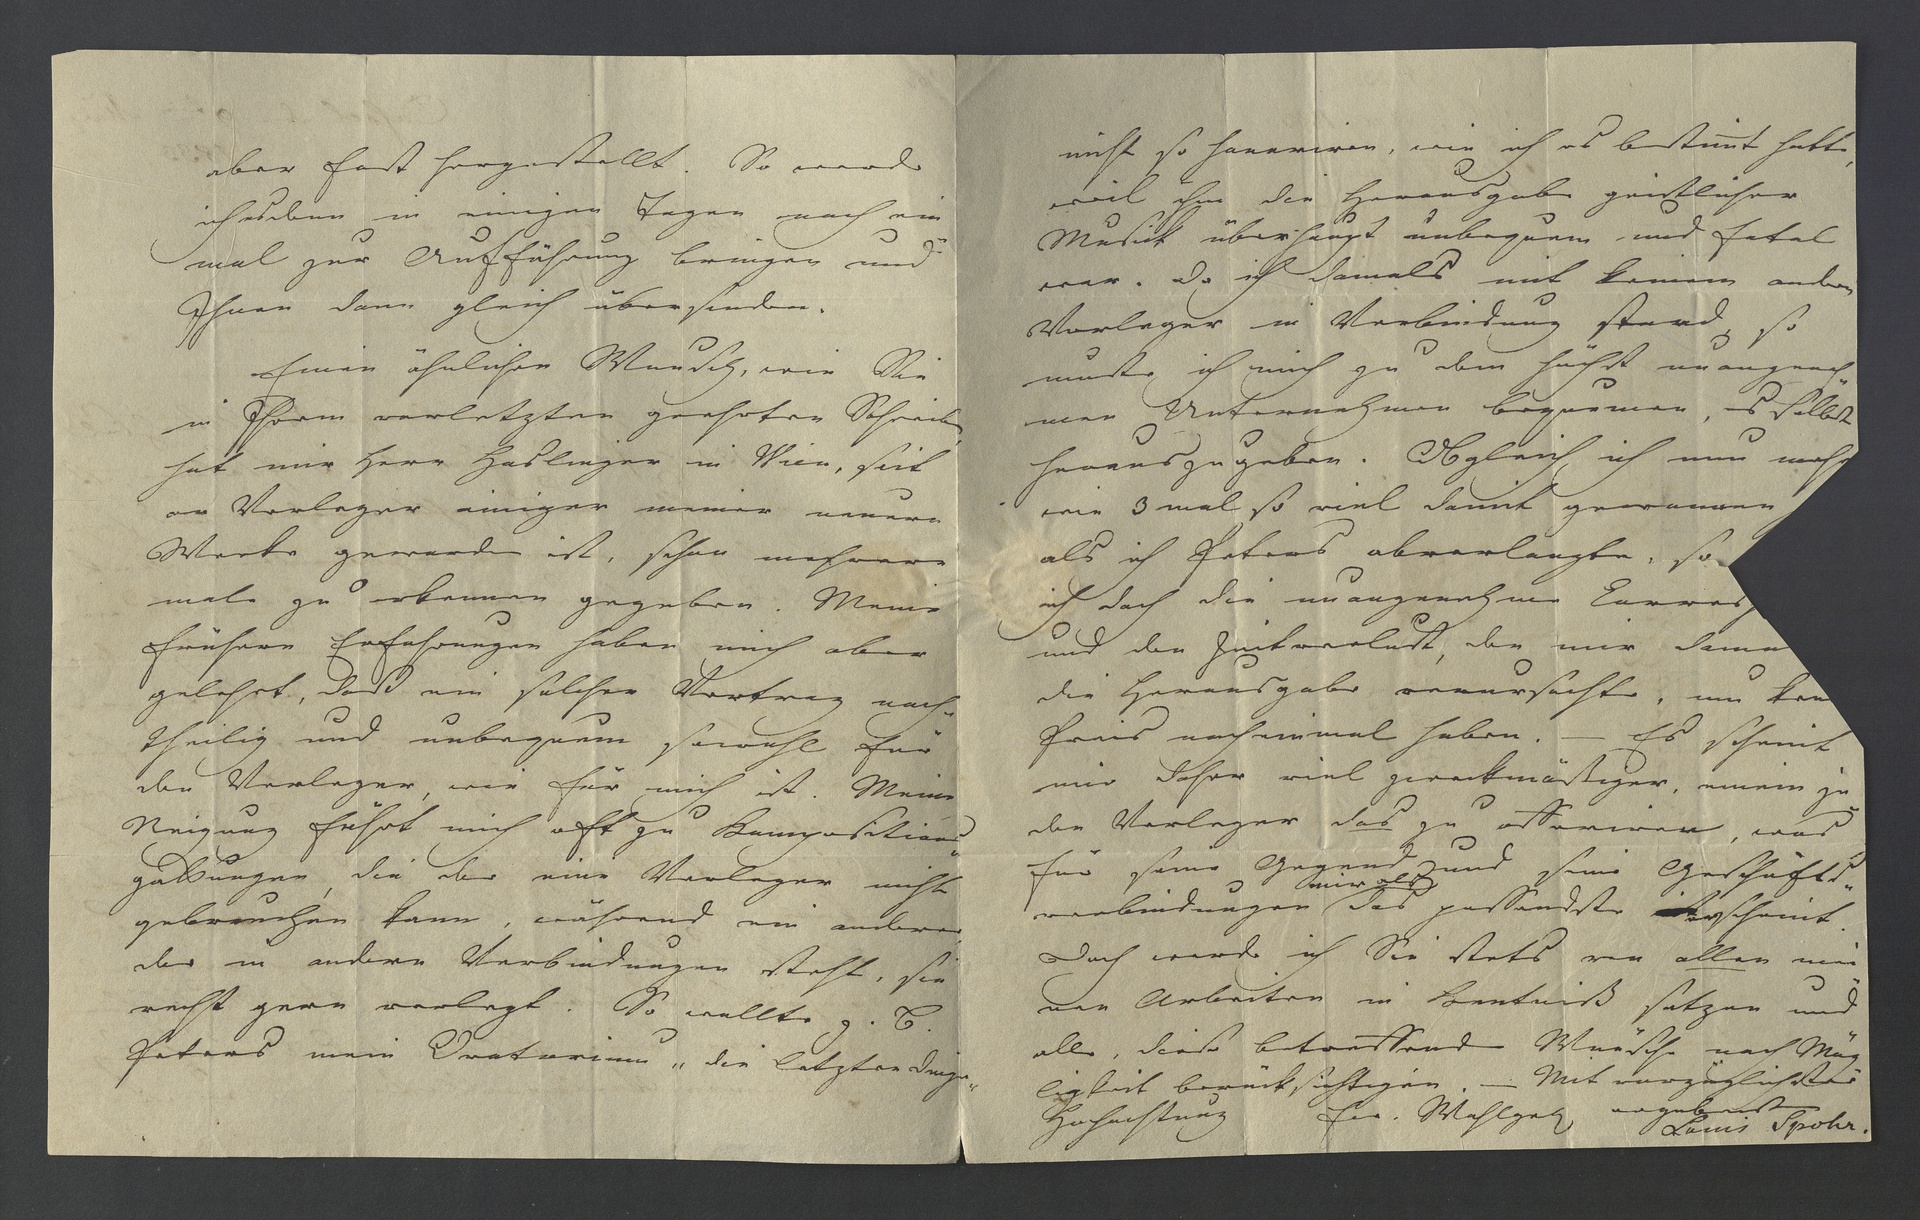 aber fast hergestellt. So werde
ich es dann in einigen Tagen noch ein
mal zur Aufführung bringen und
Ihnen dann gleich übersenden.
Einen ähnlichen Wunsch, wie Sie
in Ihrem vorletzten geehrten Schreiben
hat mir Herr Haslinger in Wien, seit
er Verleger einiger meiner neuern
Werke geworden ist, schon mehrere
male zu erkennen gegeben. Meine
frühern Erfahrungen haben mich aber
gelehrt, daß ein solcher Vertrag nach-
theilig und unbequem sowohl für
den Verleger, wie für mich ist. Meine
Neigung führt mich oft zu Kompositions-
gattungen, die der eine Verleger nicht
gebrauchen kann, während ein anderer,
der in andern Verbindungen steht, sie
recht gern verlegt. So wollte z. B.
Peters mein Oratorium „die letzten Dinge“
nicht so honoriren, wie ich es bestimt hatte,
weil ihm die Herausgabe geistlicher
Musick überhaupt unbequem und fatal
war. Da ich damals mit keinem andern
Verleger in Verbindung stand, so
mußte ich mich zu dem höchst unangeneh
men Unternehmen bequemen, es selbst
herauszugeben. Obgleich ich nun mehr
wie 3 mal so viel damit gewonnen
als ich Peters abverlangte, so
ich doch die unangenehme Corresp
und den Zeitverlust, den mir dama
die Herausgabe verursachte, um kei
Preis noch einmal haben. — Es scheint
mir daher viel zweckmäßiger, einem je
den Verleger das zu offeriren, was
für seine Gegend und seine Geschäfts-
verbindungen mir als das passendste erscheint.
Doch werde ich Sie stets von allen mei
nen Arbeiten in Kentniß setzen und
alle, diese betreffende Wünsche nach Mög
ligkeit berücksichtigen. — Mit vorzüglichster
Hochachtung Ew. Wohlgeb. ergebenster
Louis Spohr.